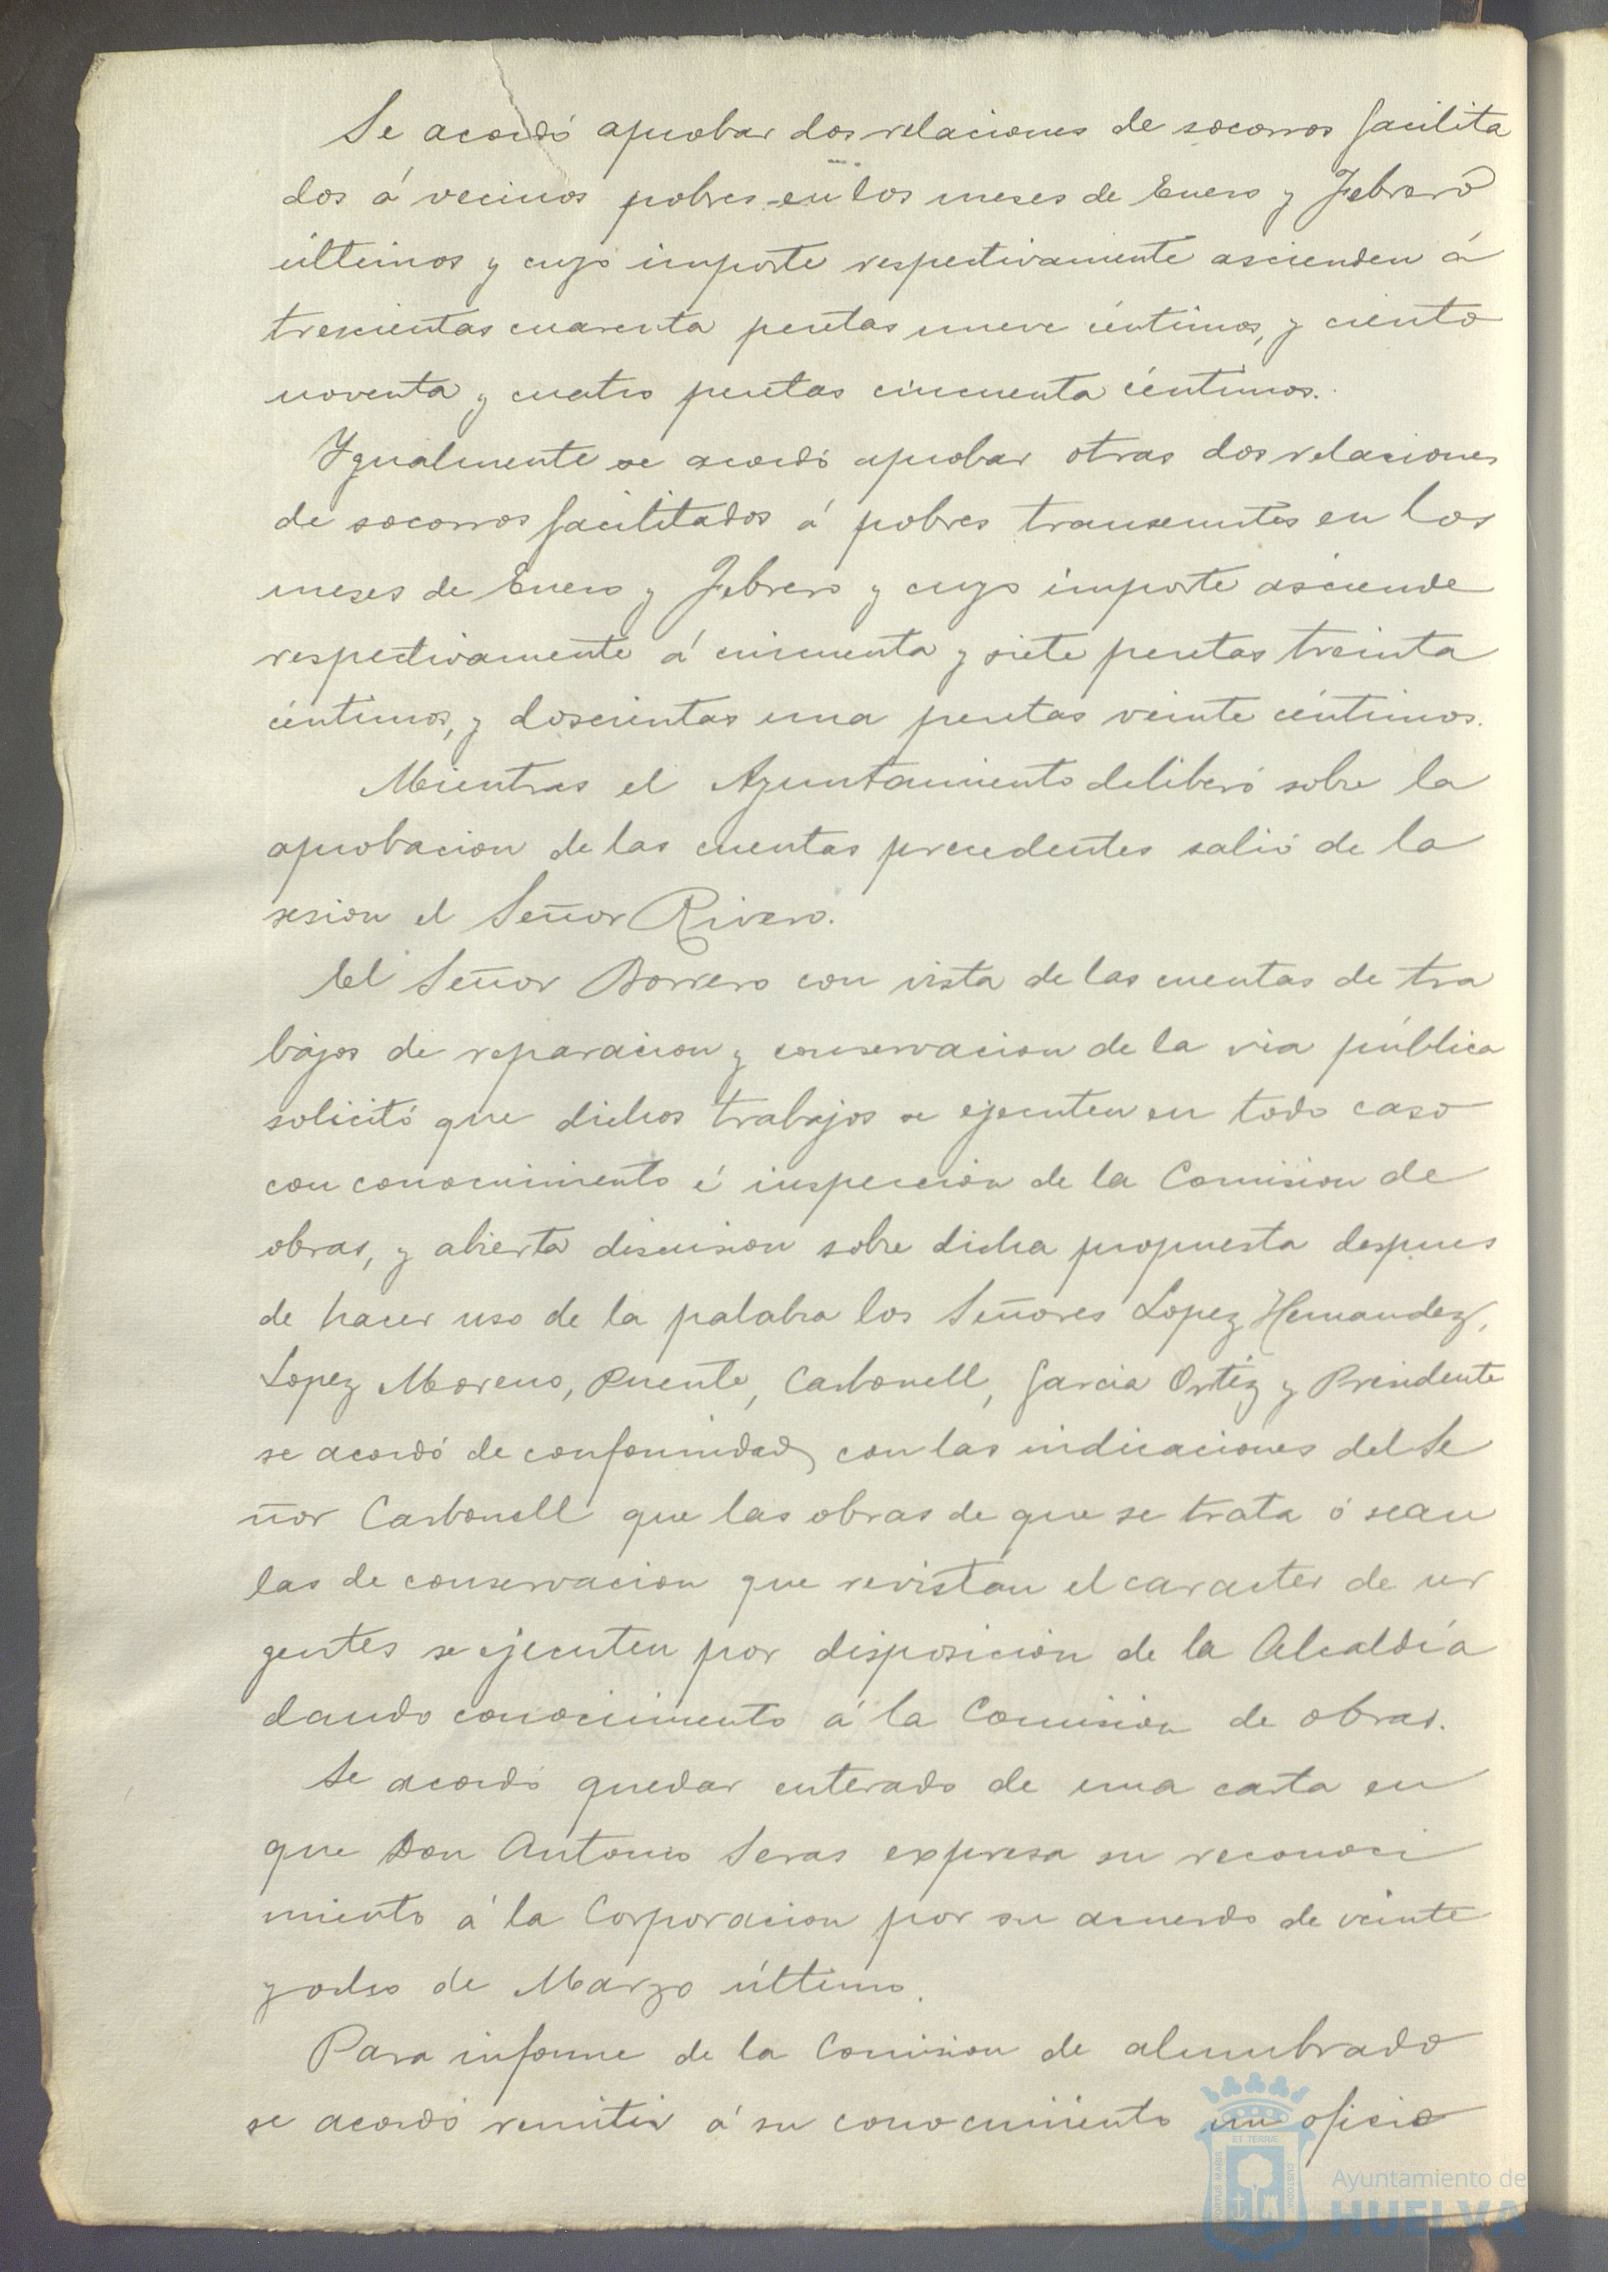 Se acordó aprobar dos relaciones de socorros facilita
dos á vecinos pobres en los meses de Enero y Febrero
últimos y cuyo importe respectivamente ascienden á
trescientas cuarenta pesetas nueve céntimos, y ciento
noventa y cuatro pesetas cincuenta céntimos.
Ygualmente se acordó aprobar otras dos relaciones
de socorros facilitados á pobres transeuntes en los
meses de Enero y Febrero y cuyo importe asciende
respectivamente á cincuenta y siete pesetas treinta
céntimos, y doscientas una pesetas veinte céntimos.
Mientras el Ayuntamiento deliberó sobre la
aprobacion de las cuentas precedentes salió de la
sesion el Señor Rivero.
El Señor Borrero con vista de las cuentas de tra
bajos de reparacion y conservacion de la via pública
solicitó que dichos trabajos se ejecuten en todo caso
con conocimiento é inspeccion de la Comision de
obras, y abierta discusion sobre dicha propuesta despues
de hacer uso de la palabra los Señores Lopez Hernandez,
Lopez Moreno, Puente, Carbonell, Garcia Ortiz y Presidente
se acordó de conformidad con las indicaciones del Se
ñor Carbonell que las obras de que se trata ó sean
las de conservacion que revistan el caracter de ur
gentes se ejecuten por disposicion de la Alcaldía
dando conocimiento á la Comision de obras.
Se acordó quedar enterado de una carta en
que Don Antonio Seras expresa su reconoci
miento á la Corporacion por su acuerdo de veinte
y ocho de Marzo último.
Para informe de la Comision de alumbrado
se acordó remitir á su conocimiento un oficio
ET TERRÆ
PORTUS MARIS
CUSTODIA
Ayuntamiento de
HUELVA